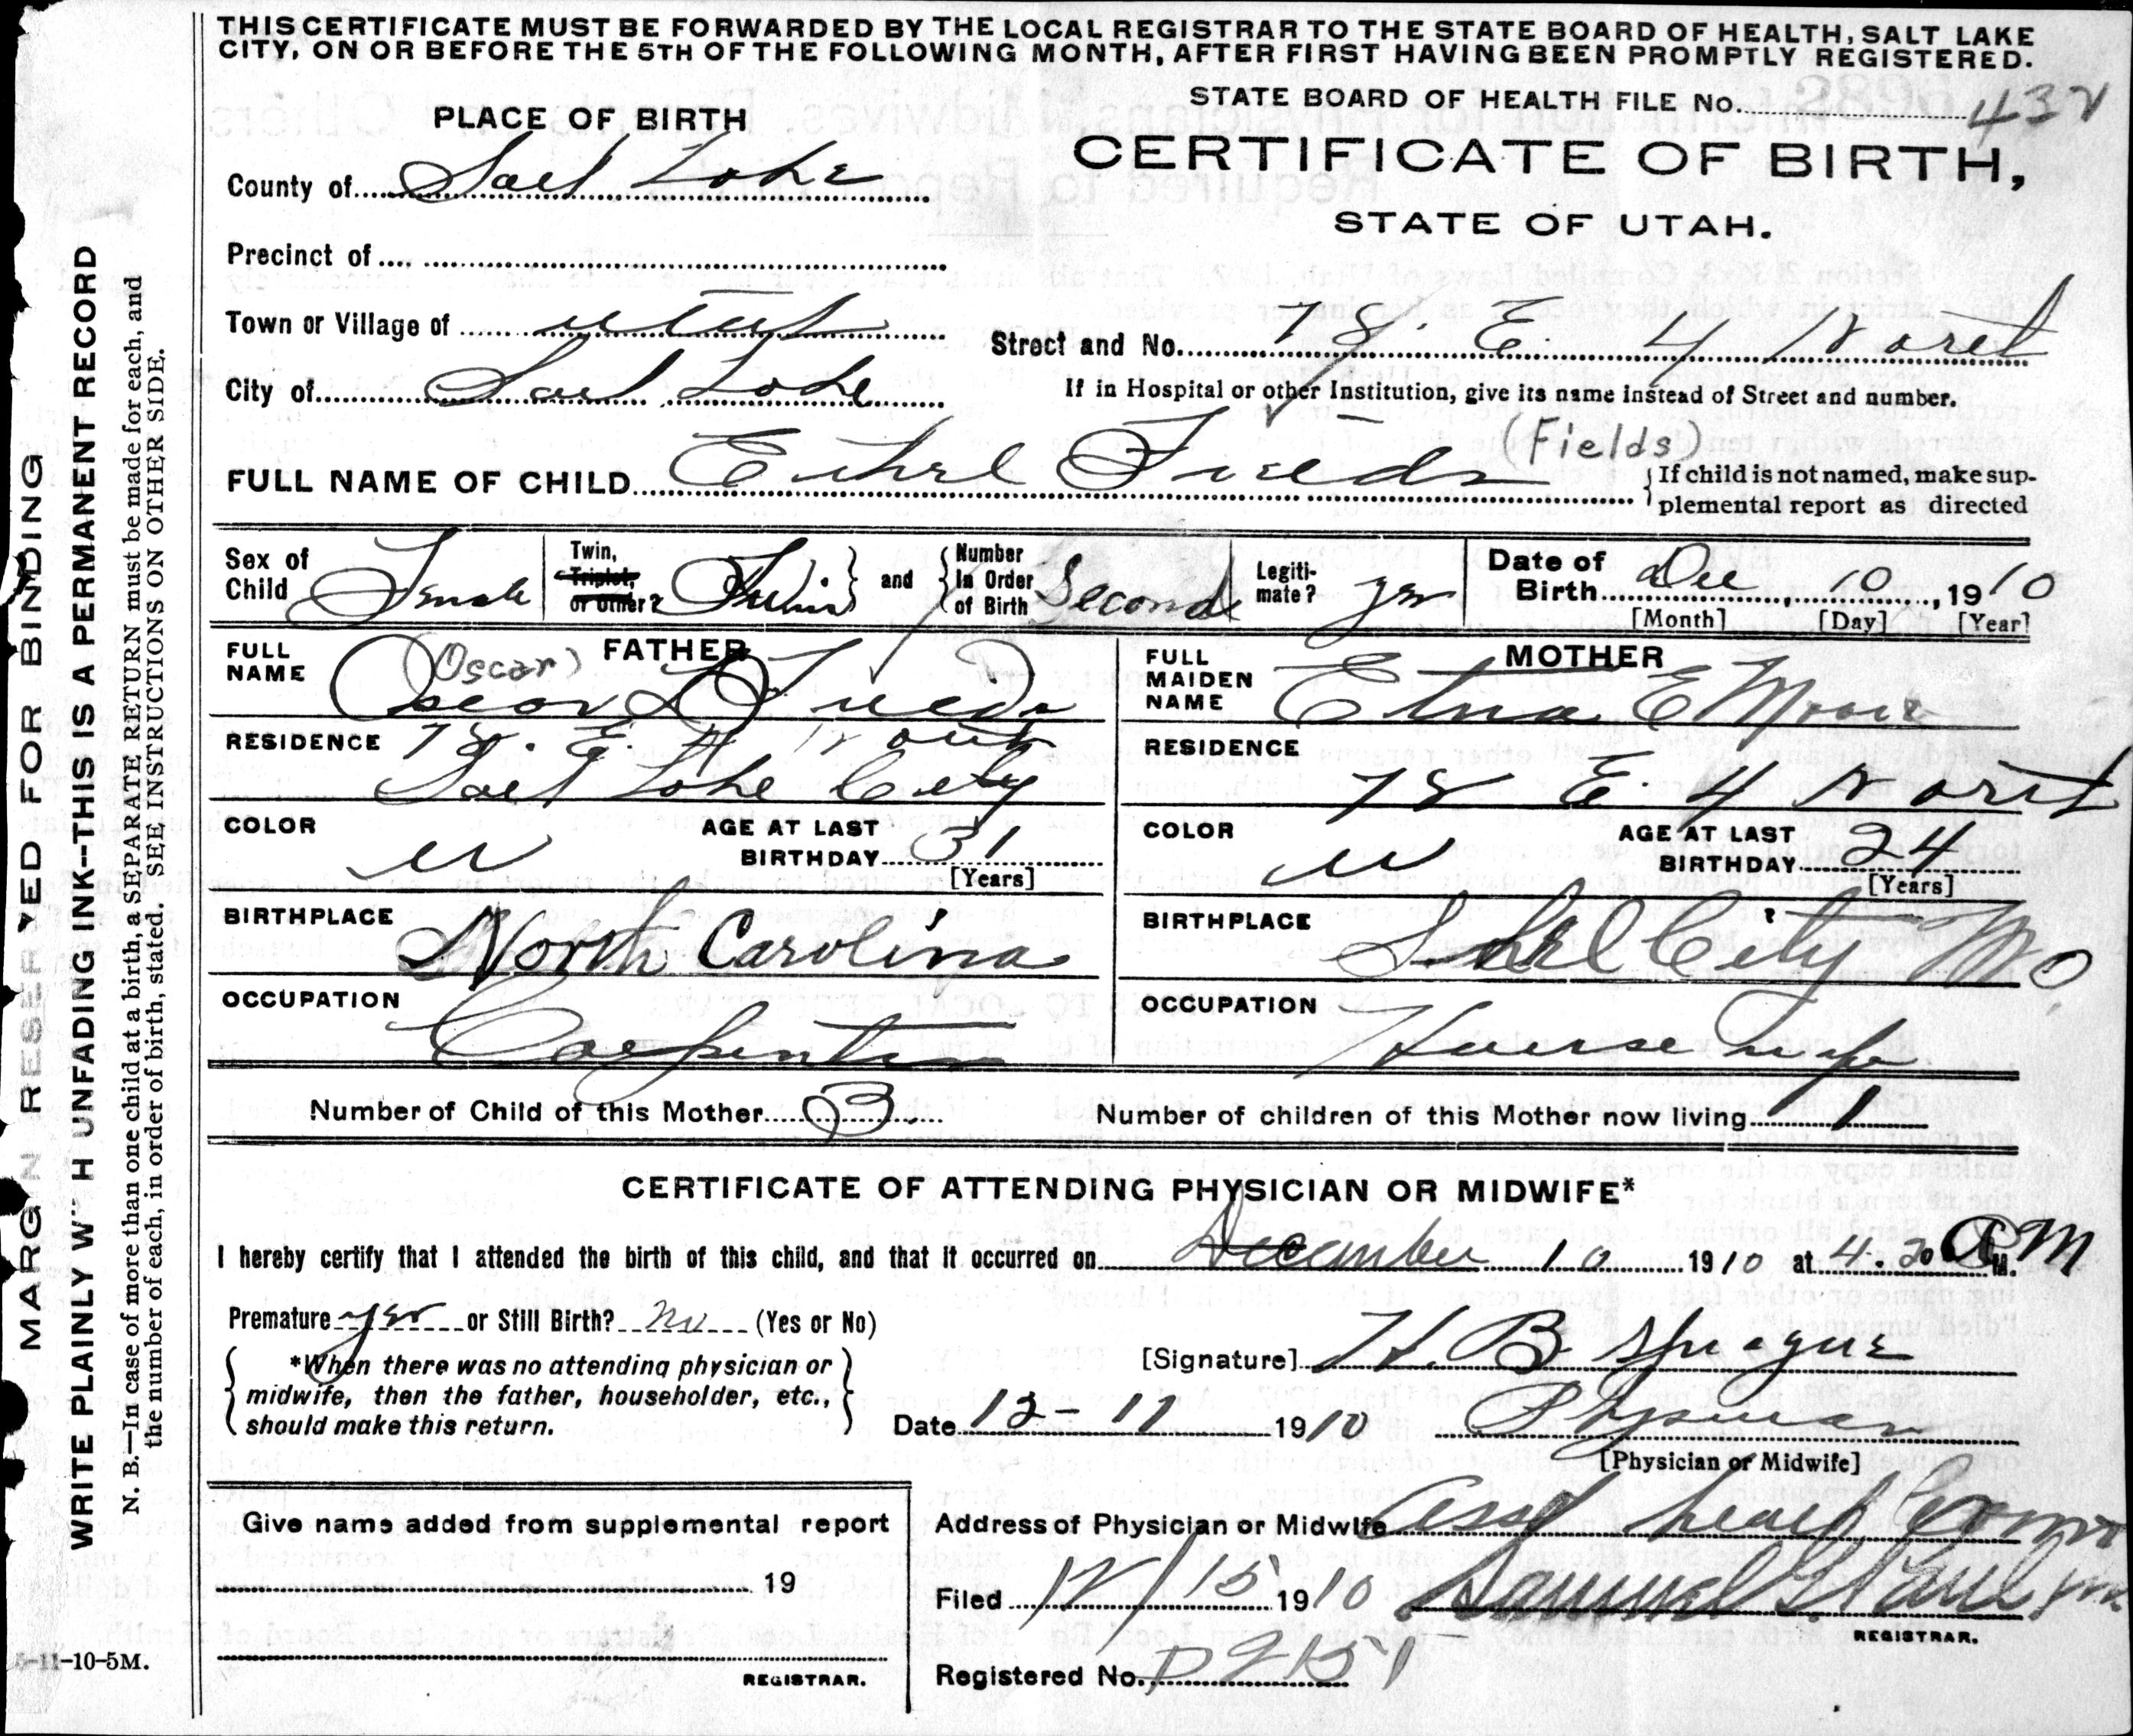 THIS CERTIFICATE MUST BE FORWARDED BY THE LOCAL REGISTRAR TO THE STATE BOARD OF HEALTH, SALT LAKE
CITY, ON OR BEFORE THE 5TH OF THE FOLLOWING MONTH, AFTER FIRST HAVING BEEN PROMPTLY REGISTERED.
STATE BOARD OF HEALTH FILE No. 432
PLACE OF BIRTH
CERTIFICATE OF BIRTH,
STATE OF UTAH.
County of Salt Lake
Precinct of
Town or Village of Utah
Street and No. 78. E. 4 North
City of Salt Lake
If in Hospital or other Institution, give its name instead of Street and number.
(Fields)
FULL NAME OF CHILD Ethel Fields
If child is not named, make sup-
plemental report as directed
Sex of Child Female
Twin, Triplet, or other? Twin
and
Number In Order of Birth Second
Legiti-mate? yes
Date of Birth Dec 10, 1910
[Month] [Day] [Year]
FATHER
FULL NAME (Oscar) Oscar D Fields
RESIDENCE 78. E. 4 North
Salt Lake City
COLOR W
AGE AT LAST BIRTHDAY 31
[Years]
BIRTHPLACE North Carolina
OCCUPATION Carpenter
MOTHER
FULL MAIDEN NAME Etna E Moore
RESIDENCE
78 E. 4 North
COLOR W
AGE AT LAST BIRTHDAY 24
[Years]
BIRTHPLACE City Mo
OCCUPATION House wife
Number of Child of this Mother 3
Number of children of this Mother now living 1
CERTIFICATE OF ATTENDING PHYSICIAN OR MIDWIFE*
I hereby certify that I attended the birth of this child, and that it occurred on December 10 1910 at 4.20 A M.
Premature yes or Still Birth? No (Yes or No)
*When there was no attending physician or
midwife, then the father, householder, etc.,
should make this return.
[Signature] H. B. Sprague
Date 12-11 1910 Physician
[Physician or Midwife]
Give name added from supplemental report
19
REGISTRAR.
Address of Physician or Midwife Asst Health Comr
Filed 12/15 1910 Samuel G. Paul
REGISTRAR.
Registered No. D2151
MARGIN RESERVED FOR BINDING
WRITE PLAINLY WITH UNFADING INK--THIS IS A PERMANENT RECORD
N. B.—In case of more than one child at a birth, a SEPARATE RETURN must be made for each, and
the number of each, in order of birth, stated. SEE INSTRUCTIONS ON OTHER SIDE.
-11-10-5M.